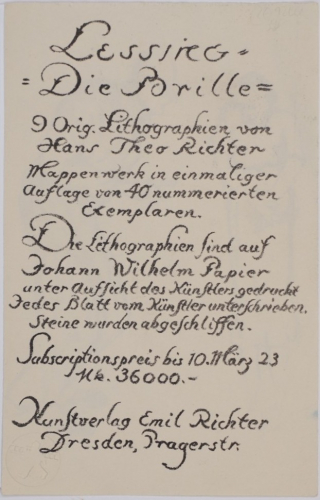 Lessing -
= Die Brille =
9 Orig. Lithographien von
Hans Theo Richter
Mappenwerk in einmaliger
Auflage von 40 nummerierten
Exemplaren.
Die Lithographien sind auf
Johann Wilhelm Papier
unter Aufsicht des Künstlers gedruckt
Jedes Blatt vom Künstler unterschrieben.
Steine wurden abgeschliffen.
Subscriptionspreis bis 10. März 23
Mk. 36000.-
Kunstverlag Emil Richter
Dresden, Pragerstr.